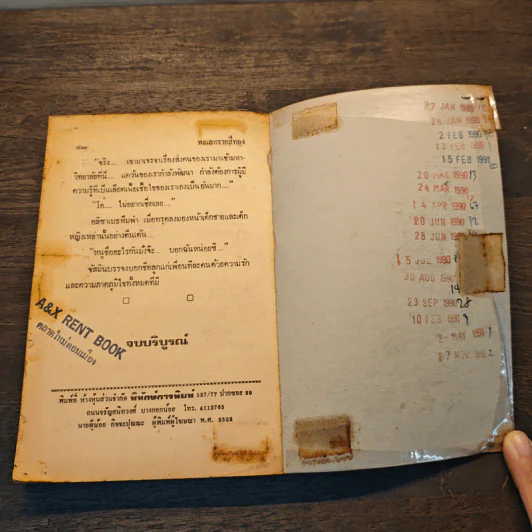 ๔๓๐
พลเลทรายสีทอง
"จริง... เขามาเจรจาเรื่องส่งคนของเรามาเข้ามหา-
วิทยาลัยที่นี่... แคว้นของเรากำลังพัฒนา กำลังต้องการผู้มี
ความรู้ที่เป็นเลือดเนื้อเชื้อไขของเราเองเป็นอันมาก..."
"โอ... ไม่อยากเชื่อเลย..."
อลิซาเบธพึมพำ เมื่อทรุดลงมองหน้าเด็กชายและเด็ก
หญิงเหล่านั้นอย่างตื่นเต้น
"หนูชื่ออะไรกันมั่งจ๊ะ... บอกฉันหน่อยซิ..."
บรรจงบอกชื่อลูกแก่เพื่อนทีละคนด้วยความรัก
และความภาคภูมิใจทั้งหมดที่มี
A&X RENT BOOK
ตลาดใหม่ดอนเมือง
จบบริบูรณ์
พิมพ์ที่ ห้างหุ้นส่วนจำกัด พิทักษ์การพิมพ์ 127/77 ปากซอย 29
ถนนจรัญสนิทวงศ์ บางกอกน้อย โทร. 4112765
นายตุ๊น้อย กิจจะปุณณะ ผู้พิมพ์ผู้โฆษณา พ.ศ. 2532
27 JAN 1990
28 JAN 1990
2 FEB 1990
12 FEB
15 FEB 1990
20 MAR 1990
24 MAR 1990
14 APR 1990
20 JUN 1990 12
28 JUN 1990
15 JUL 1990
30 AUG 1990
14
23 SEP 1990 28
10 FEB 1991 9
2-MAY 1991
7 NOV 1991